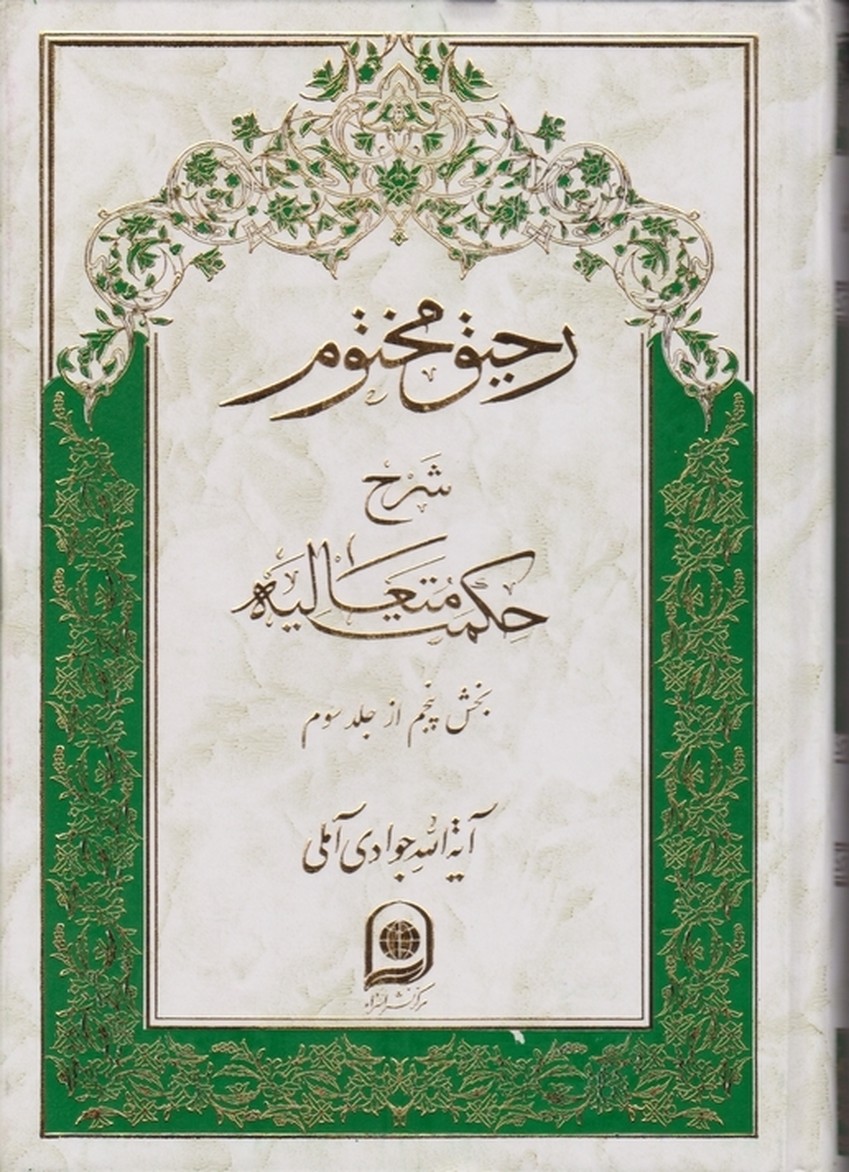 رحیق مختوم
شرح
حکمت متعالیه
بخش پنجم از جلد سوم
آیة الله جوادی آملی
مرکز نشر اسراء